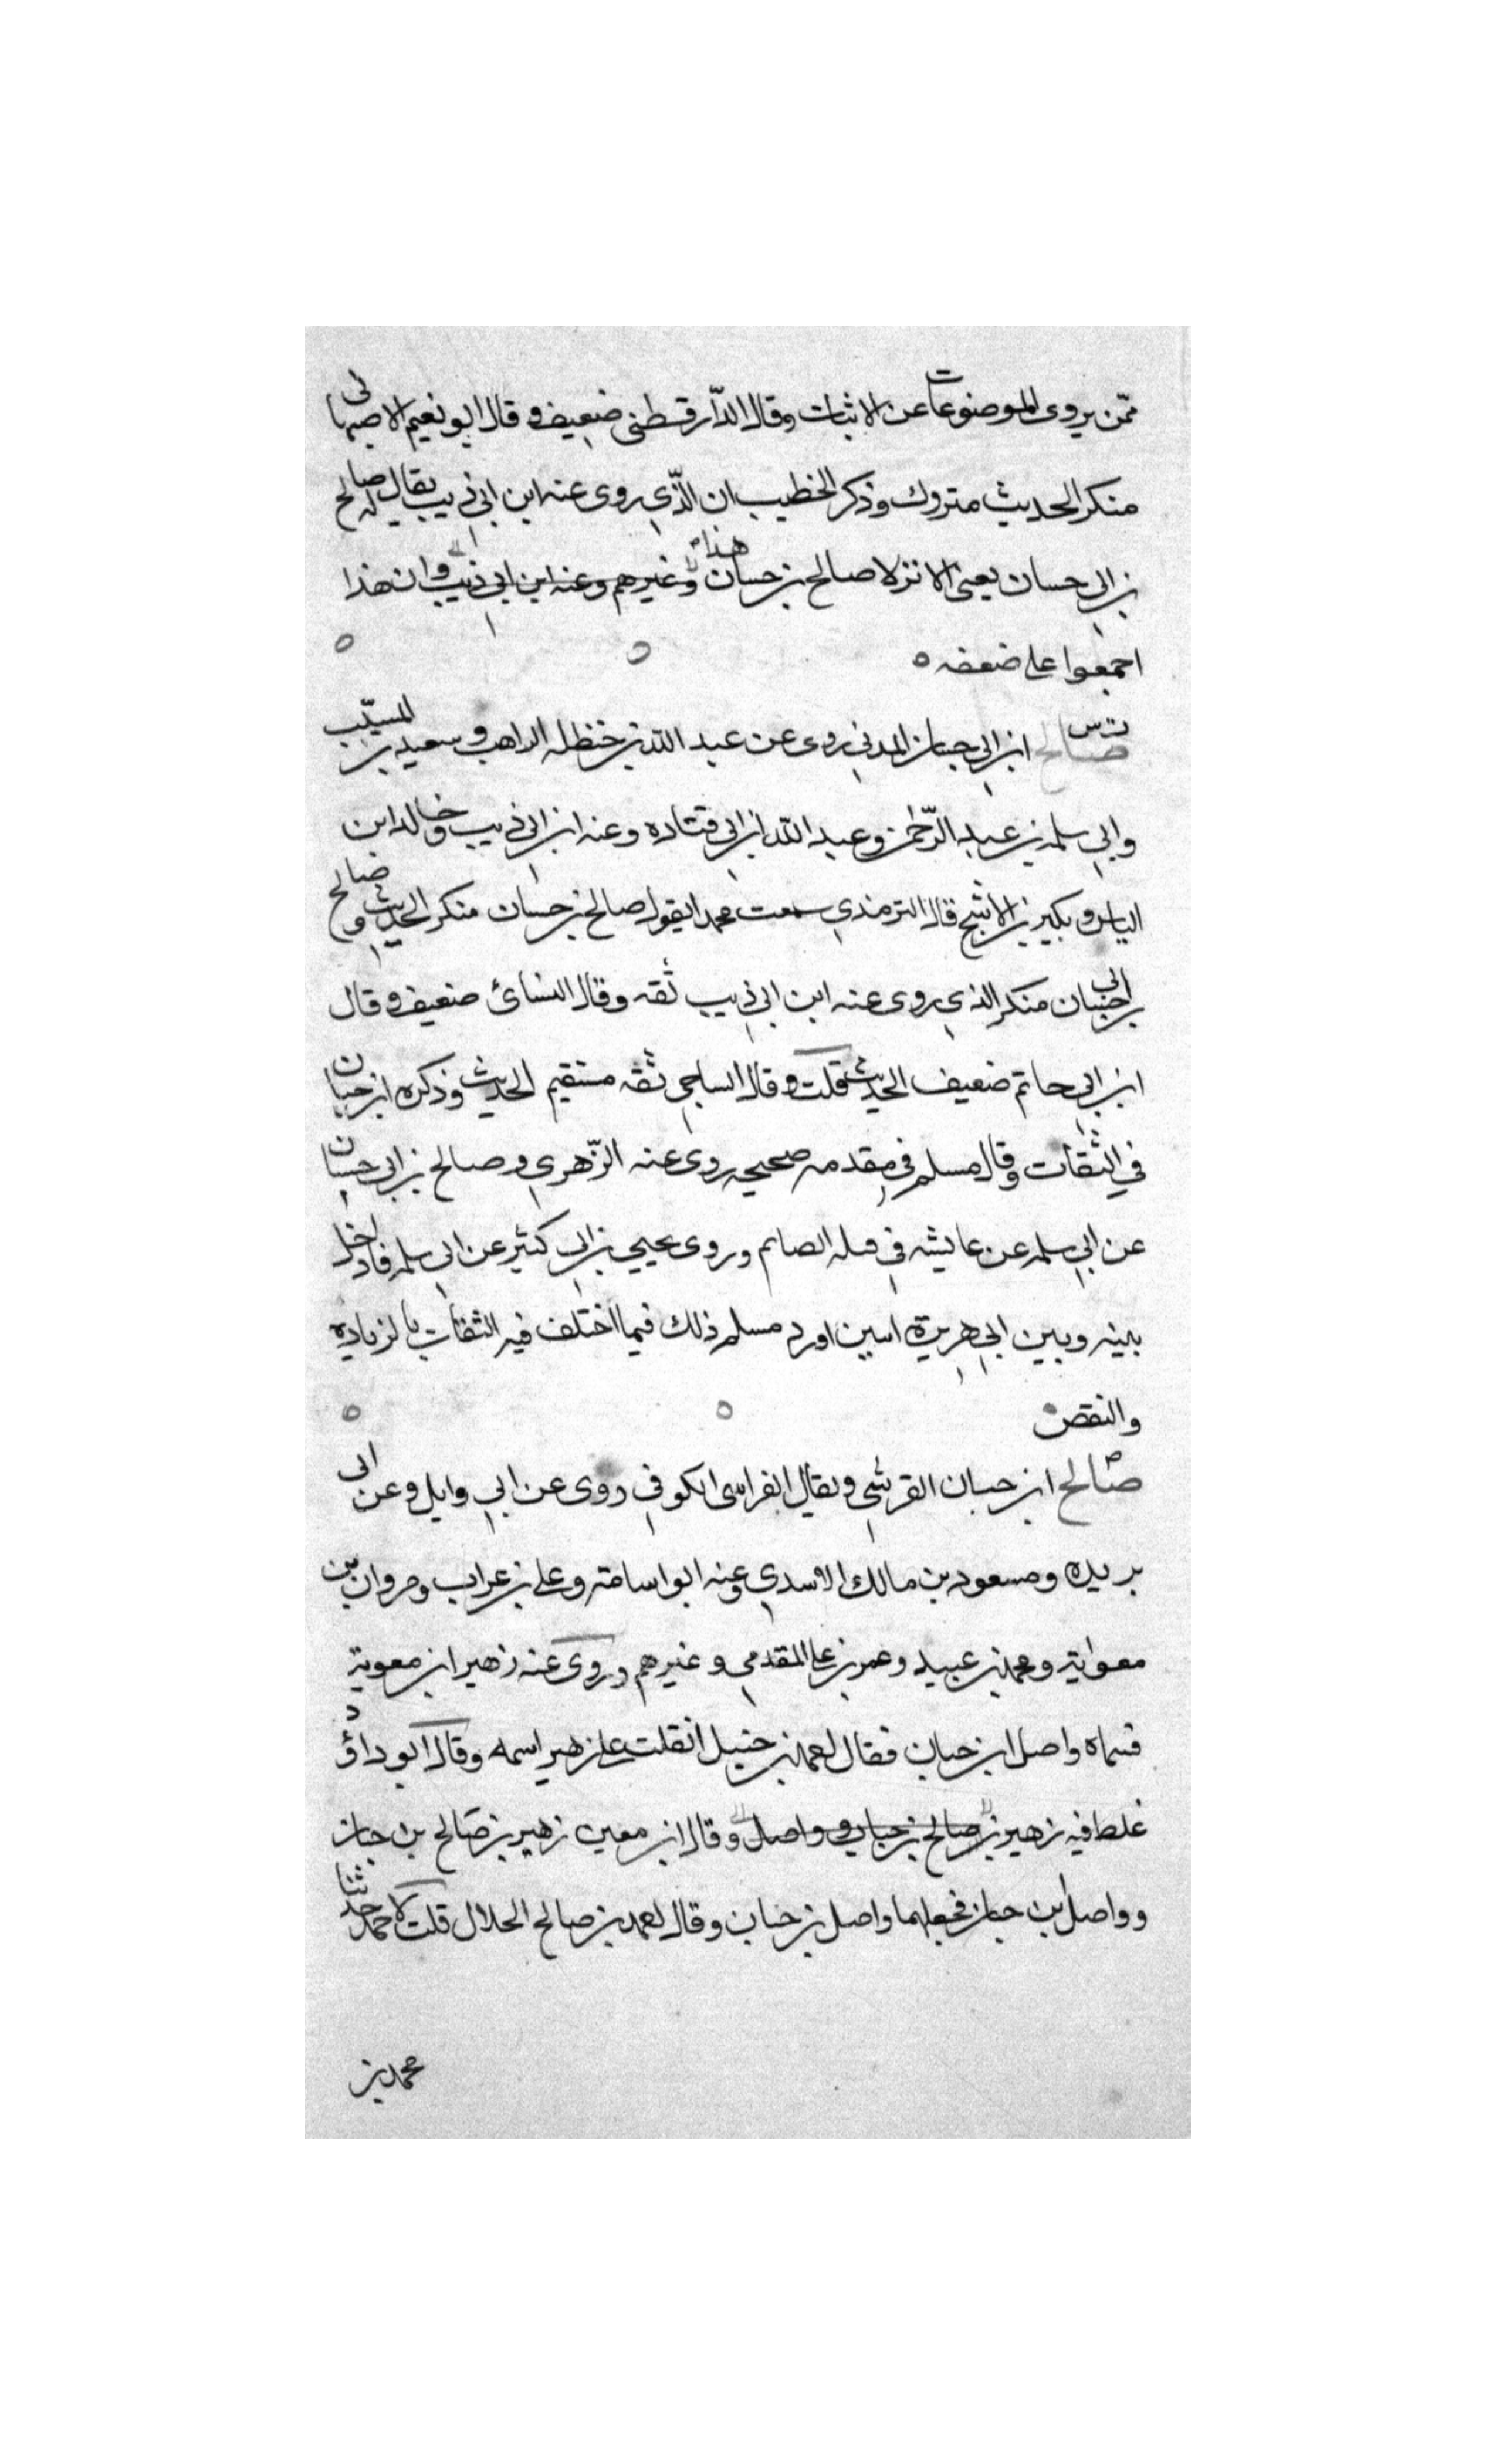 ممّن يروى الموضوعات عن الاثبات وقال الدّارقطنى ضعيف وقال ابو نعيم الاصبهانى
منكر الحديث متروك وذكر الخطيب ان الذّي روى عنه ابن ابي ذيب يقال له صالح
بن ابي حسان يعنى الاتى لا صالح بن حسان هذا وغيرهم وعنه ابن ابي ذيب وان هذا
اجمعوا على ضعفه ه
ت س صالح ابن ابي حسان المدني روى عن عبد الله بن حنظله الراهب و سعيد بن المسيّب
وابي سلمه بن عبد الرّحمن وعبد الله ابن ابي قتاده وعنه ابن ابي ذيب وخالد ابن
الياس وبكير بن الاشج قال الترمذي سمعت محمدا يقول صالح بن حسان منكر الحديث وصالح
بن ابي حسان منكر الذي روى عنه ابن ابي ذيب ثقه وقال النسائ ضعيف وقال
ابن ابي حاتم ضعيف الحديث قلت وقال الساجي ثقه مستقيم الحديث وذكره ابن حبان
في الثقات وقال مسلم في مقدمه صحيحه روى عنه الزّهري وصالح بن ابي حسان
عن ابي سلمه عن عايشه في قبله الصايم وروى يحيي بن ابي كثير عن ابي سلمه فادخل
بينه وبين ابي هريرة اورد مسلم ذلك فيما اختلف فيه الثقات بالزياده
والنقص
صالح ابن حبان القرشي ويقال الفراسي الكوفي روى عن ابي وايل وعن ابي
بريده ومسعود بن مالك الاسدي وعنه ابو اسامة وعلى بن غراب ومروان بن
معواية ومحمد بن عبيد وعمر بن على المقدمي وغيرهم وروى عنه زهير ابن معوية
فسماه واصل ابن حبان فقال احمد بن حنبل انقلبت على زهير اسمه وقال ابو داؤد
غلط فيه زهير بن صالح بن حبان و واصل وقال ابن معين زهير بن صالح بن حبان
وواصل ابن حبان فجعلهما واصل بن حبان وقال احمد بن صالح الحلال قلت لاحمد حدثنا
محمد بن